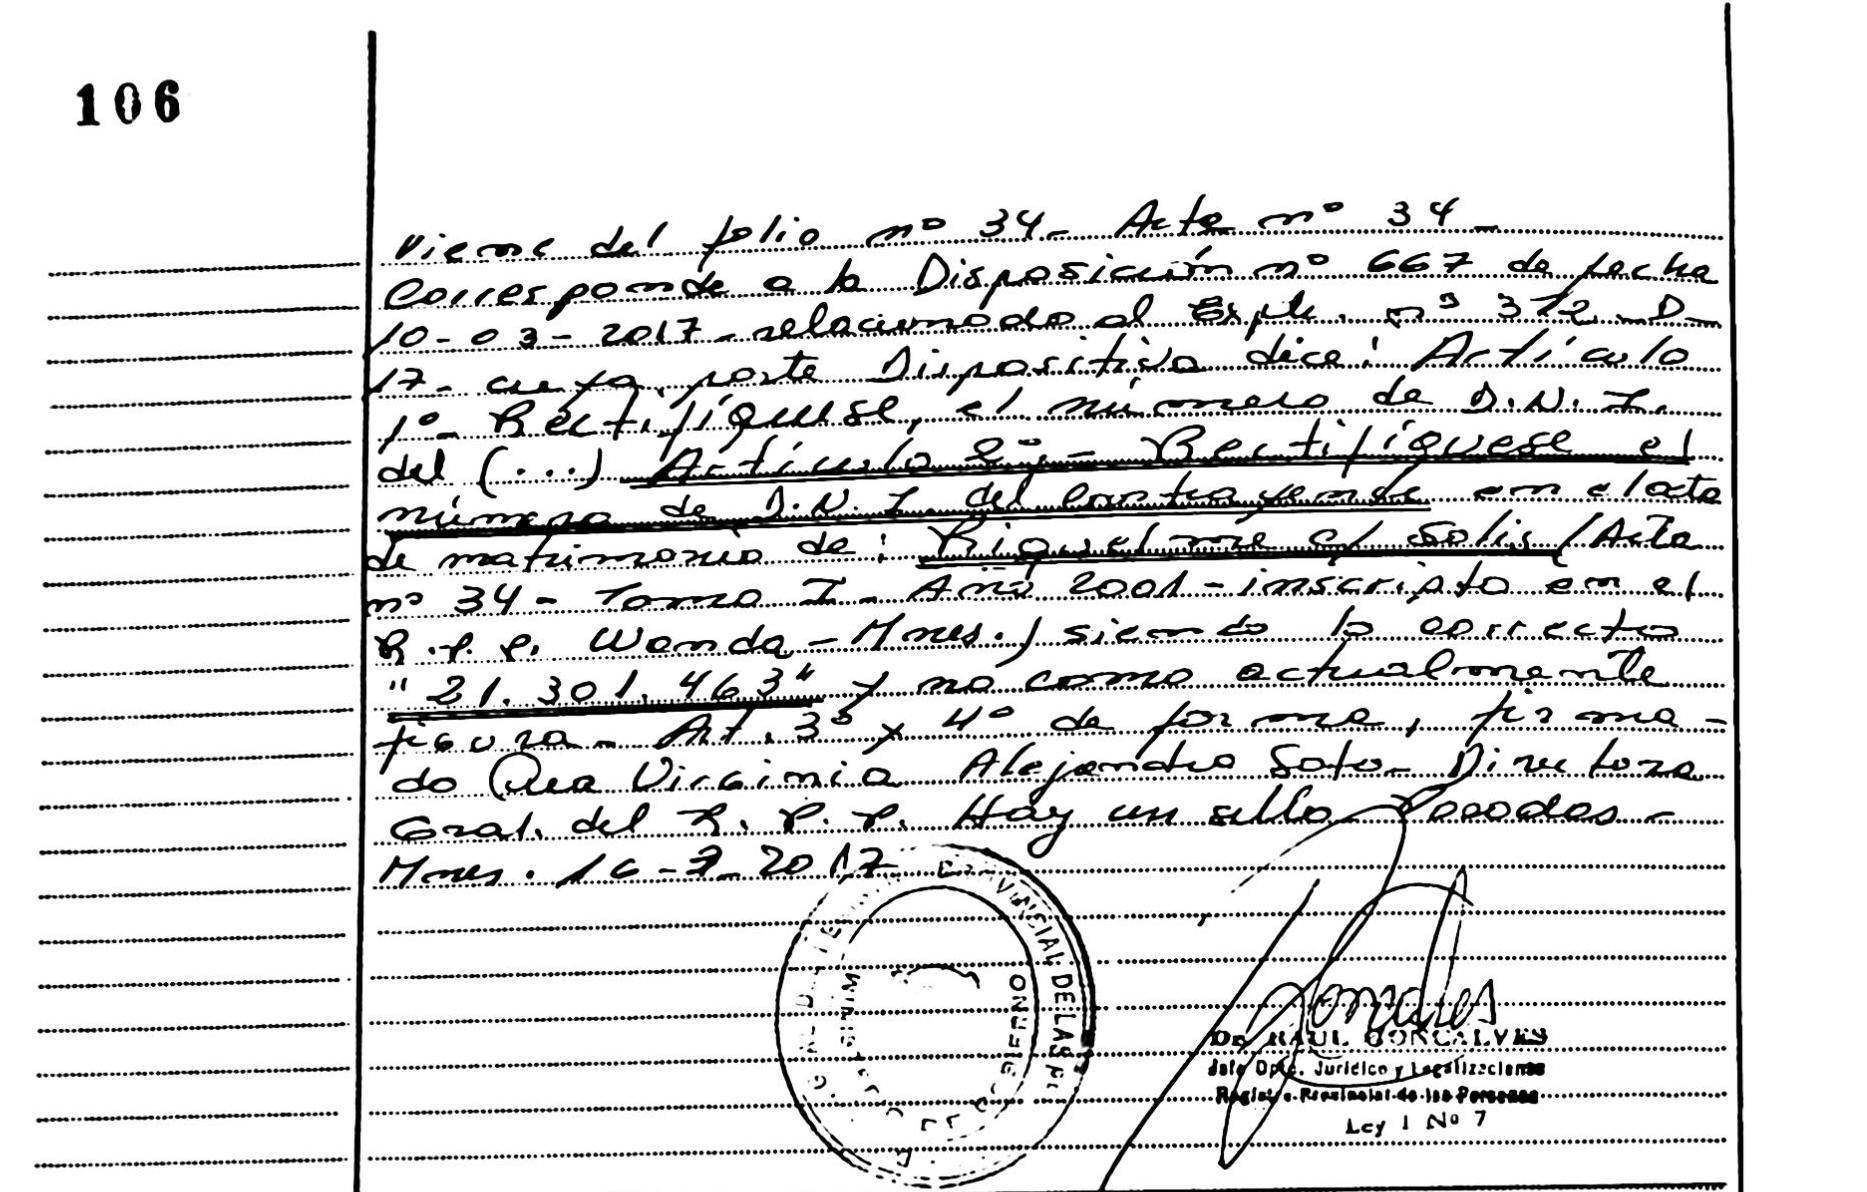 106
Viene del folio nº 34- Acta nº 34-
Corresponde a la Disposición nº 667 de fecha
10-03-2017- relacionado al Expte. nº 372-D-
17- cuya parte Dispositiva dice: Artículo
1º- Rectifíquese, el número de D.N.I.
del (...) Artículo 2º- Rectifíquese el
número de D.N.I. del contrayente en el acta
de matrimonio de: Riquelme c/ Solis (Acta
nº 34- Tomo I- Año 2001- inscripto en el
R.P.P. Wanda- Mnes.) siendo lo correcto
"21.301.463" y no como actualmente
figura- Art. 3º y 4º de forma, firma-
do Virginia Alejandra Soto- Directora
Gral. del R.P.P. Hay un sello Posadas-
Mnes. 16-3-2017
VINCIAL DE LAS
GOBIERNO
Dr. RAUL GONCALVES
Jefe Dpto. Jurídico y Legalizaciones
Registro Provincial de las Personas
Ley I Nº 7